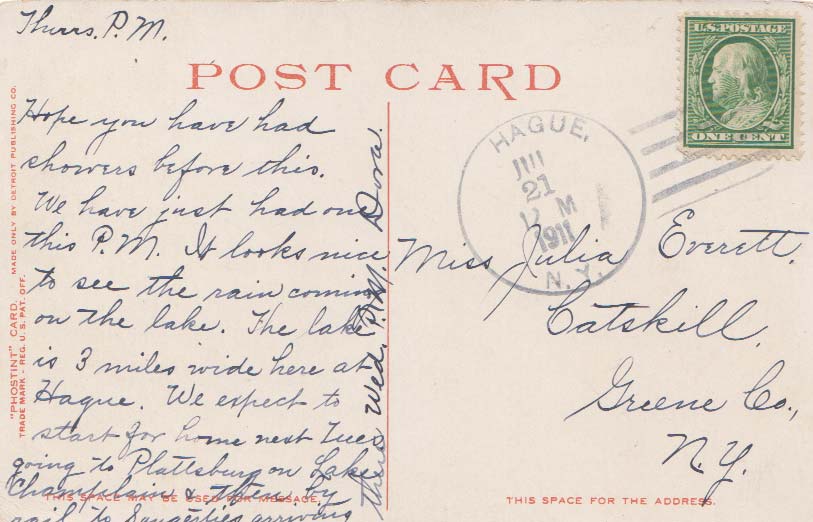 Thurs. P.M.
POST CARD
U.S. POSTAGE
ONE CENT
HAGUE,
21
M
1911
N.Y.
Hope you have had
showers before this.
We have just had one
this P.M. It looks nice
to see the rain coming
on the lake. The lake
is 3 miles wide here at
Hague. We expect to
start for home next Tues
going to Plattsburg on Lake
Champlain & then by
rail to Saugerties arriving
there Wed. P.M. Dora.
Miss Julia Everett.
Catskill.
Greene Co.,
N.Y.
"PHOSTINT" CARD. MADE ONLY BY DETROIT PUBLISHING CO.
TRADE MARK - REG. U.S. PAT. OFF.
THIS SPACE MAY BE USED FOR MESSAGE.
THIS SPACE FOR THE ADDRESS.